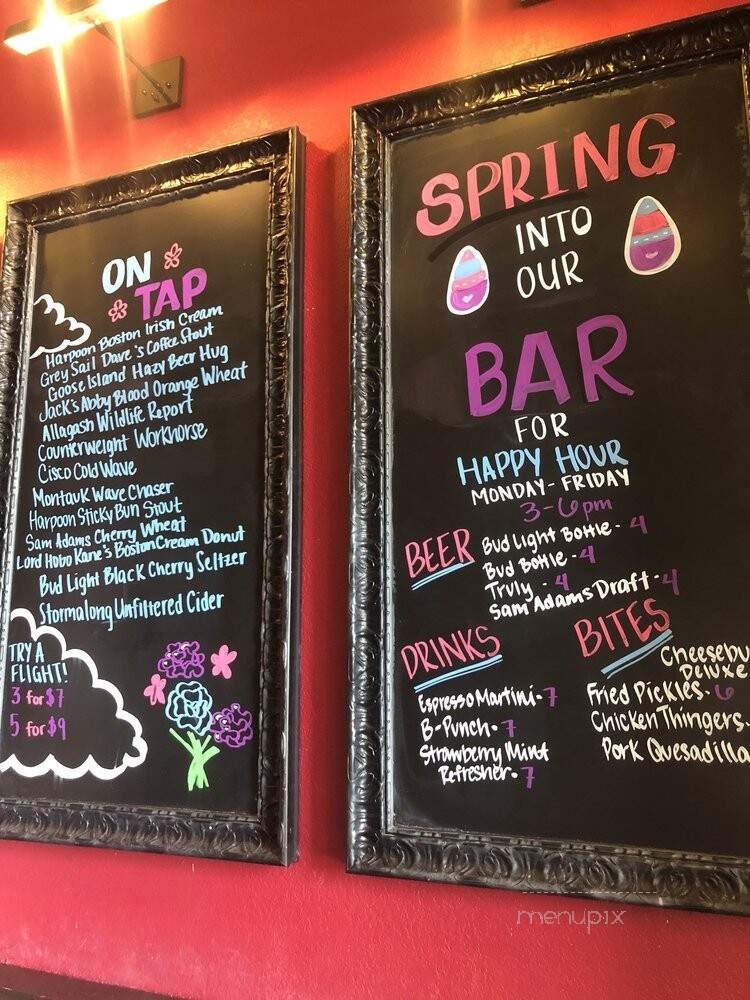 ON
TAP
Harpoon Boston Irish Cream
Grey Sail Dave's Coffee Stout
Goose Island Hazy Beer Hug
Jack's Abby Blood Orange Wheat
Allagash Wildlife Report
Counterweight Workhorse
Cisco Cold Wave
Montauk Wave Chaser
Harpoon Sticky Bun Stout
Sam Adams Cherry Wheat
Lord Hobo Kane's Boston Cream Donut
Bud Light Black Cherry Seltzer
Stormalong Unfiltered Cider
TRY A
FLIGHT!
3 for $7
5 for $9
SPRING
INTO
OUR
BAR
FOR
HAPPY HOUR
MONDAY - FRIDAY
3-6pm
BEER
Bud Light Bottle - 4
Bud Bottle - 4
Truly - 4
Sam Adams Draft - 4
DRINKS
Espresso Martini - 7
B-Punch - 7
Strawberry Mint
Refresher - 7
BITES
Cheesebu
Deluxe
Fried Pickles - 6
Chicken Thingers -
Pork Quesadilla
menupix